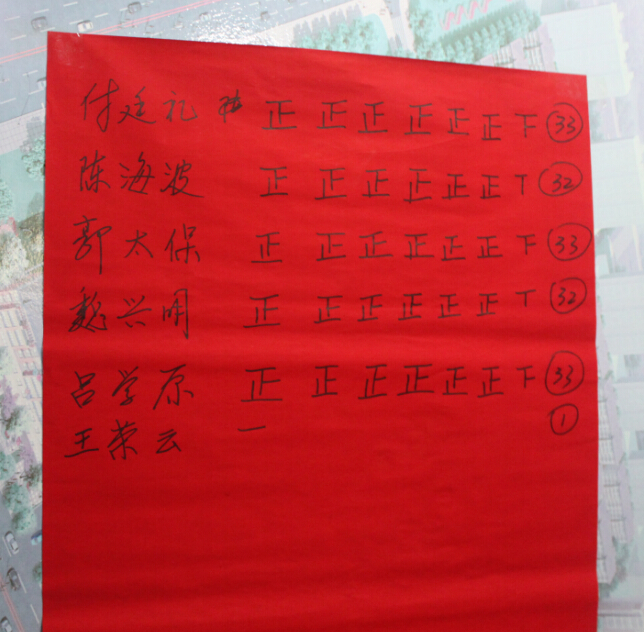 付廷礼 正 正 正 正 正 正 下 33
陈海波 正 正 正 正 正 正 丅 32
郭太保 正 正 正 正 正 正 下 33
魏兴明 正 正 正 正 正 正 丅 32
吕学原 正 正 正 正 正 正 下 33
王荣云 一 1